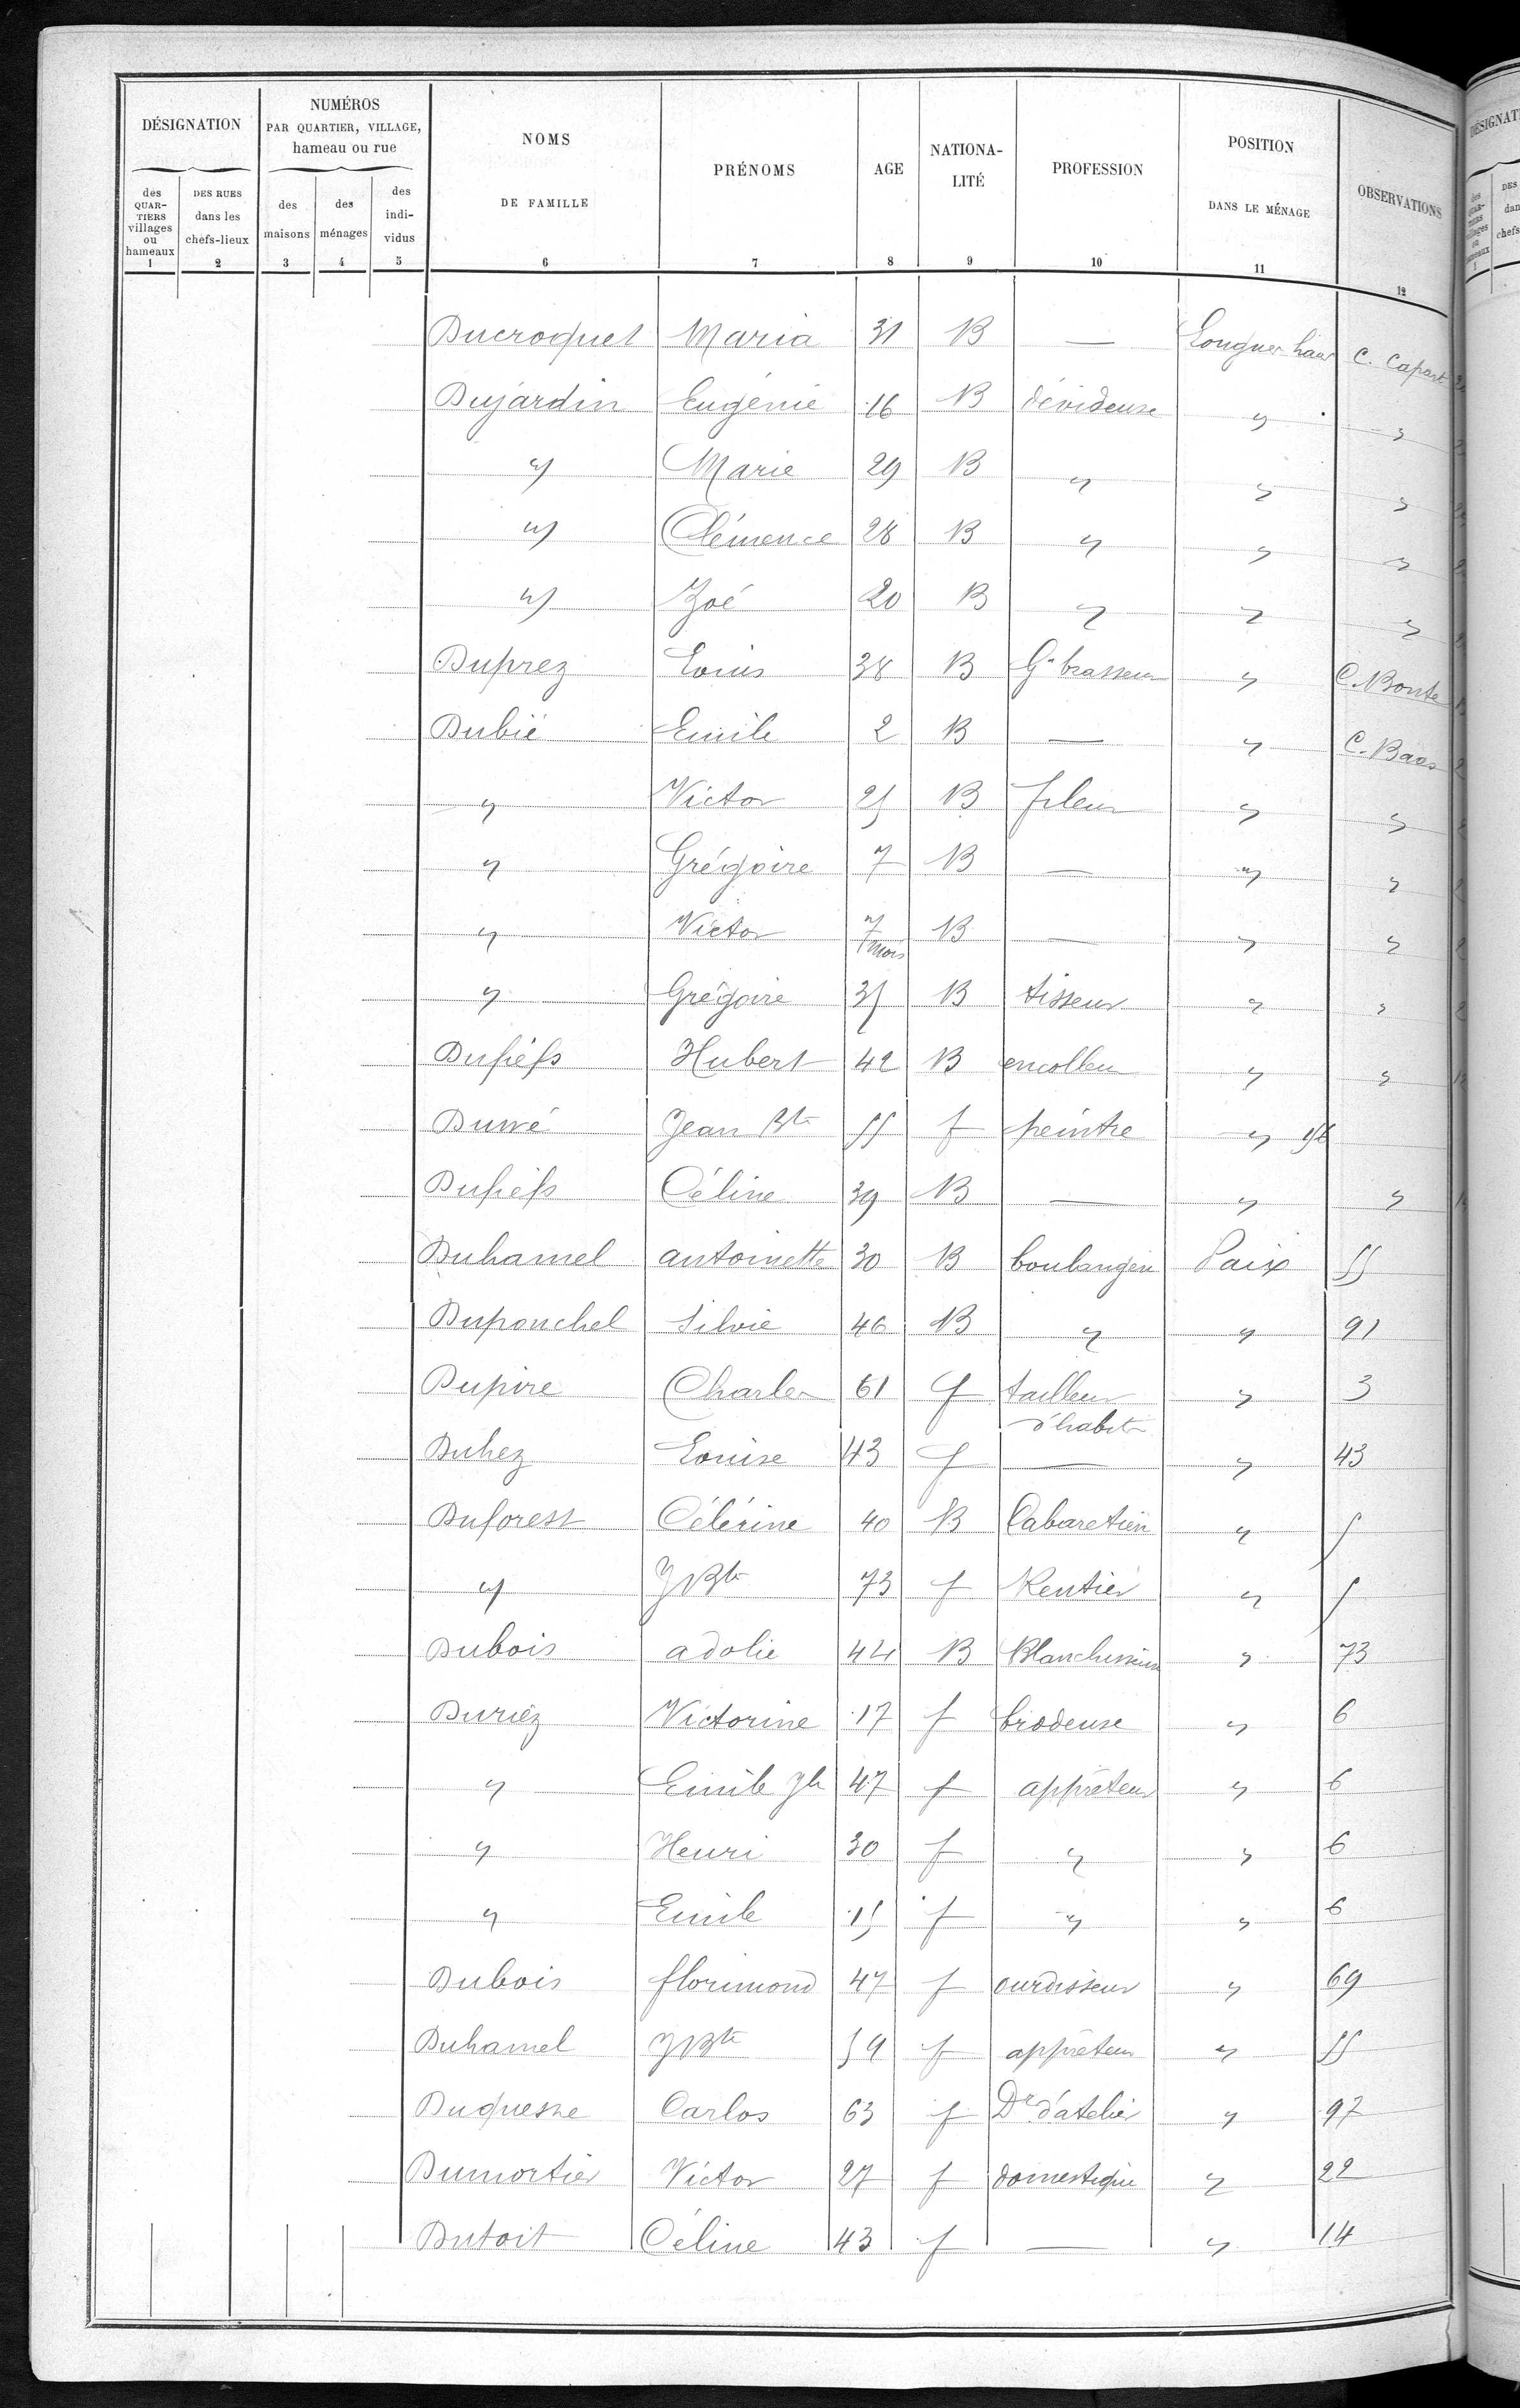 DÉSIGNATION | NUMÉROS PAR QUARTIER, VILLAGE, hameau ou rue | NOMS DE FAMILLE | PRÉNOMS | AGE | NATIONA-LITÉ | PROFESSION | POSITION DANS LE MÉNAGE | OBSERVATIONS
des QUAR-TIERS villages ou hameaux | DES RUES dans les chefs-lieux | des maisons | des ménages | des indi-vidus
1 2 3 4 5 6 7 8 9 10 11 12
Ducroquet Maria 31 B — Longues haies C. Capart
Dujardin Eugénie 16 B dévideuse " "
" Marie 29 B " " "
" Clémence 28 B " " "
" Zoé 20 B " " "
Duprez Louis 38 B Gn brasseur " C. Bonte
Dubié Emile 2 B — " C. Baas
" Victor 25 B fileur " "
" Grégoire 7 B — " "
" Victor 7 mois B — " "
" Grégoire 35 B tisseur " "
Dufiefs Hubert 42 B encolleur " "
Jean Bte 55 f peintre "
Dufiefs Céline 39 B — " "
Duhamel antoinette 30 B boulangèr Paix 55
Duponchel Silvie 46 B " " 91
Dupire Charles 61 f tailleur d'habits " 3
Duhez Louise 43 f — " 43
Duforest Célérine 40 B Cabaretièr " 5
" J Bte 73 f Rentier " 5
Dubois adolie 44 B Blanchisseuse " 73
Duriez Victorine 17 f brodeuse " 6
" Emile Jh 47 f apprêteur " 6
" Henri 30 f " " 6
" Emile 15 f " " 6
Dubois florimond 47 f ourdisseur " 69
Duhamel J Bte 59 f apprêteur " 55
Duquesne Carlos 63 f Dr d'atelier " 97
Dumortier Victor 27 f domestique " 22
Dutoit Céline 43 f — " 14